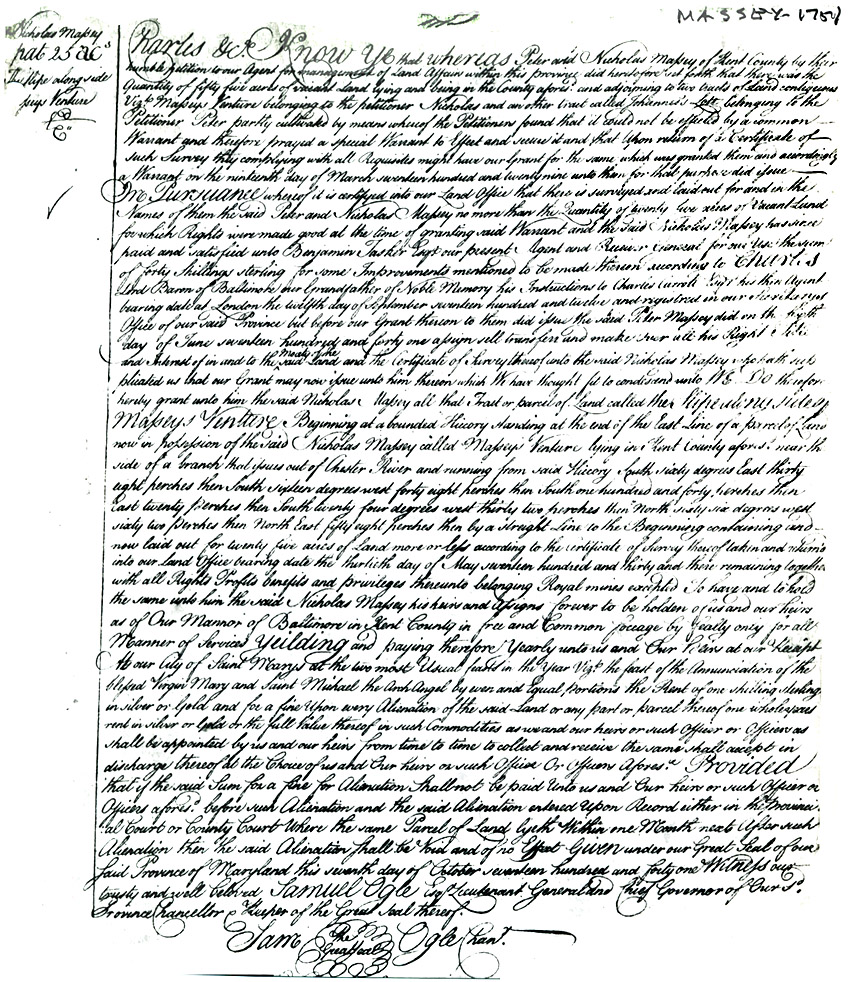 MASSEY 1751
Nicholas Massey
pat 25 acs
The slipe along side
seys Venture
Charles &c. Know Ye that whereas Peter and Nicholas Massey of Kent County by their
humble petition to our Agent for management of Land Affairs within this province did heretofore set forth that there was the
Quantity of fifty five acres of vacant Land lying and being in the County afores: and adjoyning to two tracts of Land contiguous
Vizt Masseys Venture belonging to the petitioner Nicholas and an other tract called Johannes's Lott belonging to the
Petitioner Peter partly cultivated by means whereof the Petitioners found that it would not be effected by a common
Warrant and therefore prayed a special Warrant to Effect and secure it and that Upon return of a Certificate of
such Survey they complying with all Requisites might have our Grant for the same which was granted them and accordingly
a Warrant on the nineteenth day of March seventeen hundred and twenty nine unto them for that purpose did issue
In Pursuance whereof it is certified into our Land Office that there is surveyed and laid out for and in the
Names of them the said Peter and Nicholas Massey no more than the Quantity of twenty five acres of Vacant Land
for which Rights were made good at the time of granting said Warrant and the said Nicholas Massey has since
paid and satisfied unto Benjamin Tasker Esqr our present Agent and Receiver General for our Use the sum
of forty shillings sterling for some Improvements mentioned to be made thereon according to Charles
Lord Baron of Baltimore our Grandfather of Noble Memory his Instructions to Charles Carroll Esqr his then Agent
bearing date at London the twelfth day of September seventeen hundred and twelve and registred in our Secretarys
Office of our said Province but before our Grant thereon to them did issue the said Peter Massey did on the
day of June seventeen hundred and forty one assign sell transfer and make over all his Right Title
and Interest of in and to the said Land and the Certificate of Survey thereof unto the said Nicholas Massey who hath sup
plicated us that our Grant may now issue unto him thereon which We have thought fit to condescend unto We Do therefore
hereby grant unto him the said Nicholas Massey all that Tract or parcel of Land called the slipe along side of
Masseys Venture Beginning at a bounded Hiccory standing at the end of the East Line of a parcel of Land
now in possession of the said Nicholas Massey called Masseys Venture lying in Kent County afores: near the
side of a branch that issues out of Chester River and running from said Hiccory South sixty degrees East thirty
eight perches then South sixteen degrees west forty eight perches then South one hundred and forty perches then
East twenty perches then South twenty four degrees west thirty two perches then North sixty six degrees west
sixty two perches then North East fifty eight perches then by a straight Line to the Beginning containing and
now laid out for twenty five acres of Land more or less according to the certificate of Survey thereof taken and return'd
into our Land Office bearing date the thirtieth day of May seventeen hundred and thirty and there remaining together
with all Rights Profits benefits and privileges thereunto belonging Royal mines excepted To have and to hold
the same unto him the said Nicholas Massey his heirs and Assigns forever to be holden of us and our heirs
as of Our Mannor of Baltimore in Kent County in free and Common soccage by fealty only for all
Manner of Services Yeilding and paying therefore Yearly unto us and Our heirs at our Receipt
At our City of Saint Marys at the two most Usual feasts in the Year Vizt the feast of the Annunciation of the
blessed Virgin Mary and Saint Michael the Arch Angel by even and Equal portions the Rent of one shilling sterling
in silver or Gold and for a fine Upon every Alienation of the said Land or any part or parcel thereof one whole years
rent in silver or Gold or the full Value thereof in such Commodities as we and our heirs or such Officer or Officers as
shall be appointed by us and our heirs from time to time to collect and receive the same shall accept in
discharge thereof at the Choice of us and Our heirs or such Officer Or Officers Afores.d Provided
that if the said Sum for a fine for Alienation Shall not be paid Unto us and Our heirs or such Officer or
Officers afores: before such Alienation and the said Alienation entered Upon Record either in the Provinci
al Court or County Court Where the same Parcel of Land lyeth Within one Month next After such
Alienation then the said Alienation shall be Void and of no Effect Given under our Great Seal of our
said Province of Maryland this seventh day of October seventeen hundred and forty one Witness our
trusty and well beloved Samuel Ogle Esqr Lieutenant General and Chief Governor of Our sd.
Province Chancellor & Keeper of the Great Seal thereof.
Sam Ogle Chanr.
The
Great Seal